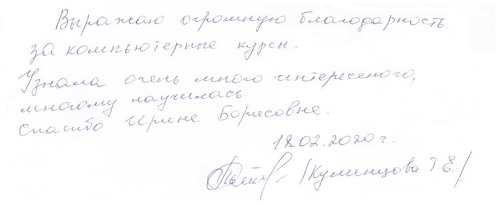 Выражаю огромную благодарность
за компьютерные курсы.
Узнала очень много интересеного,
многому научилась.
Спасибо Ирине Борисовне.
18.02.2020г.
/Куминцова Т.Е./